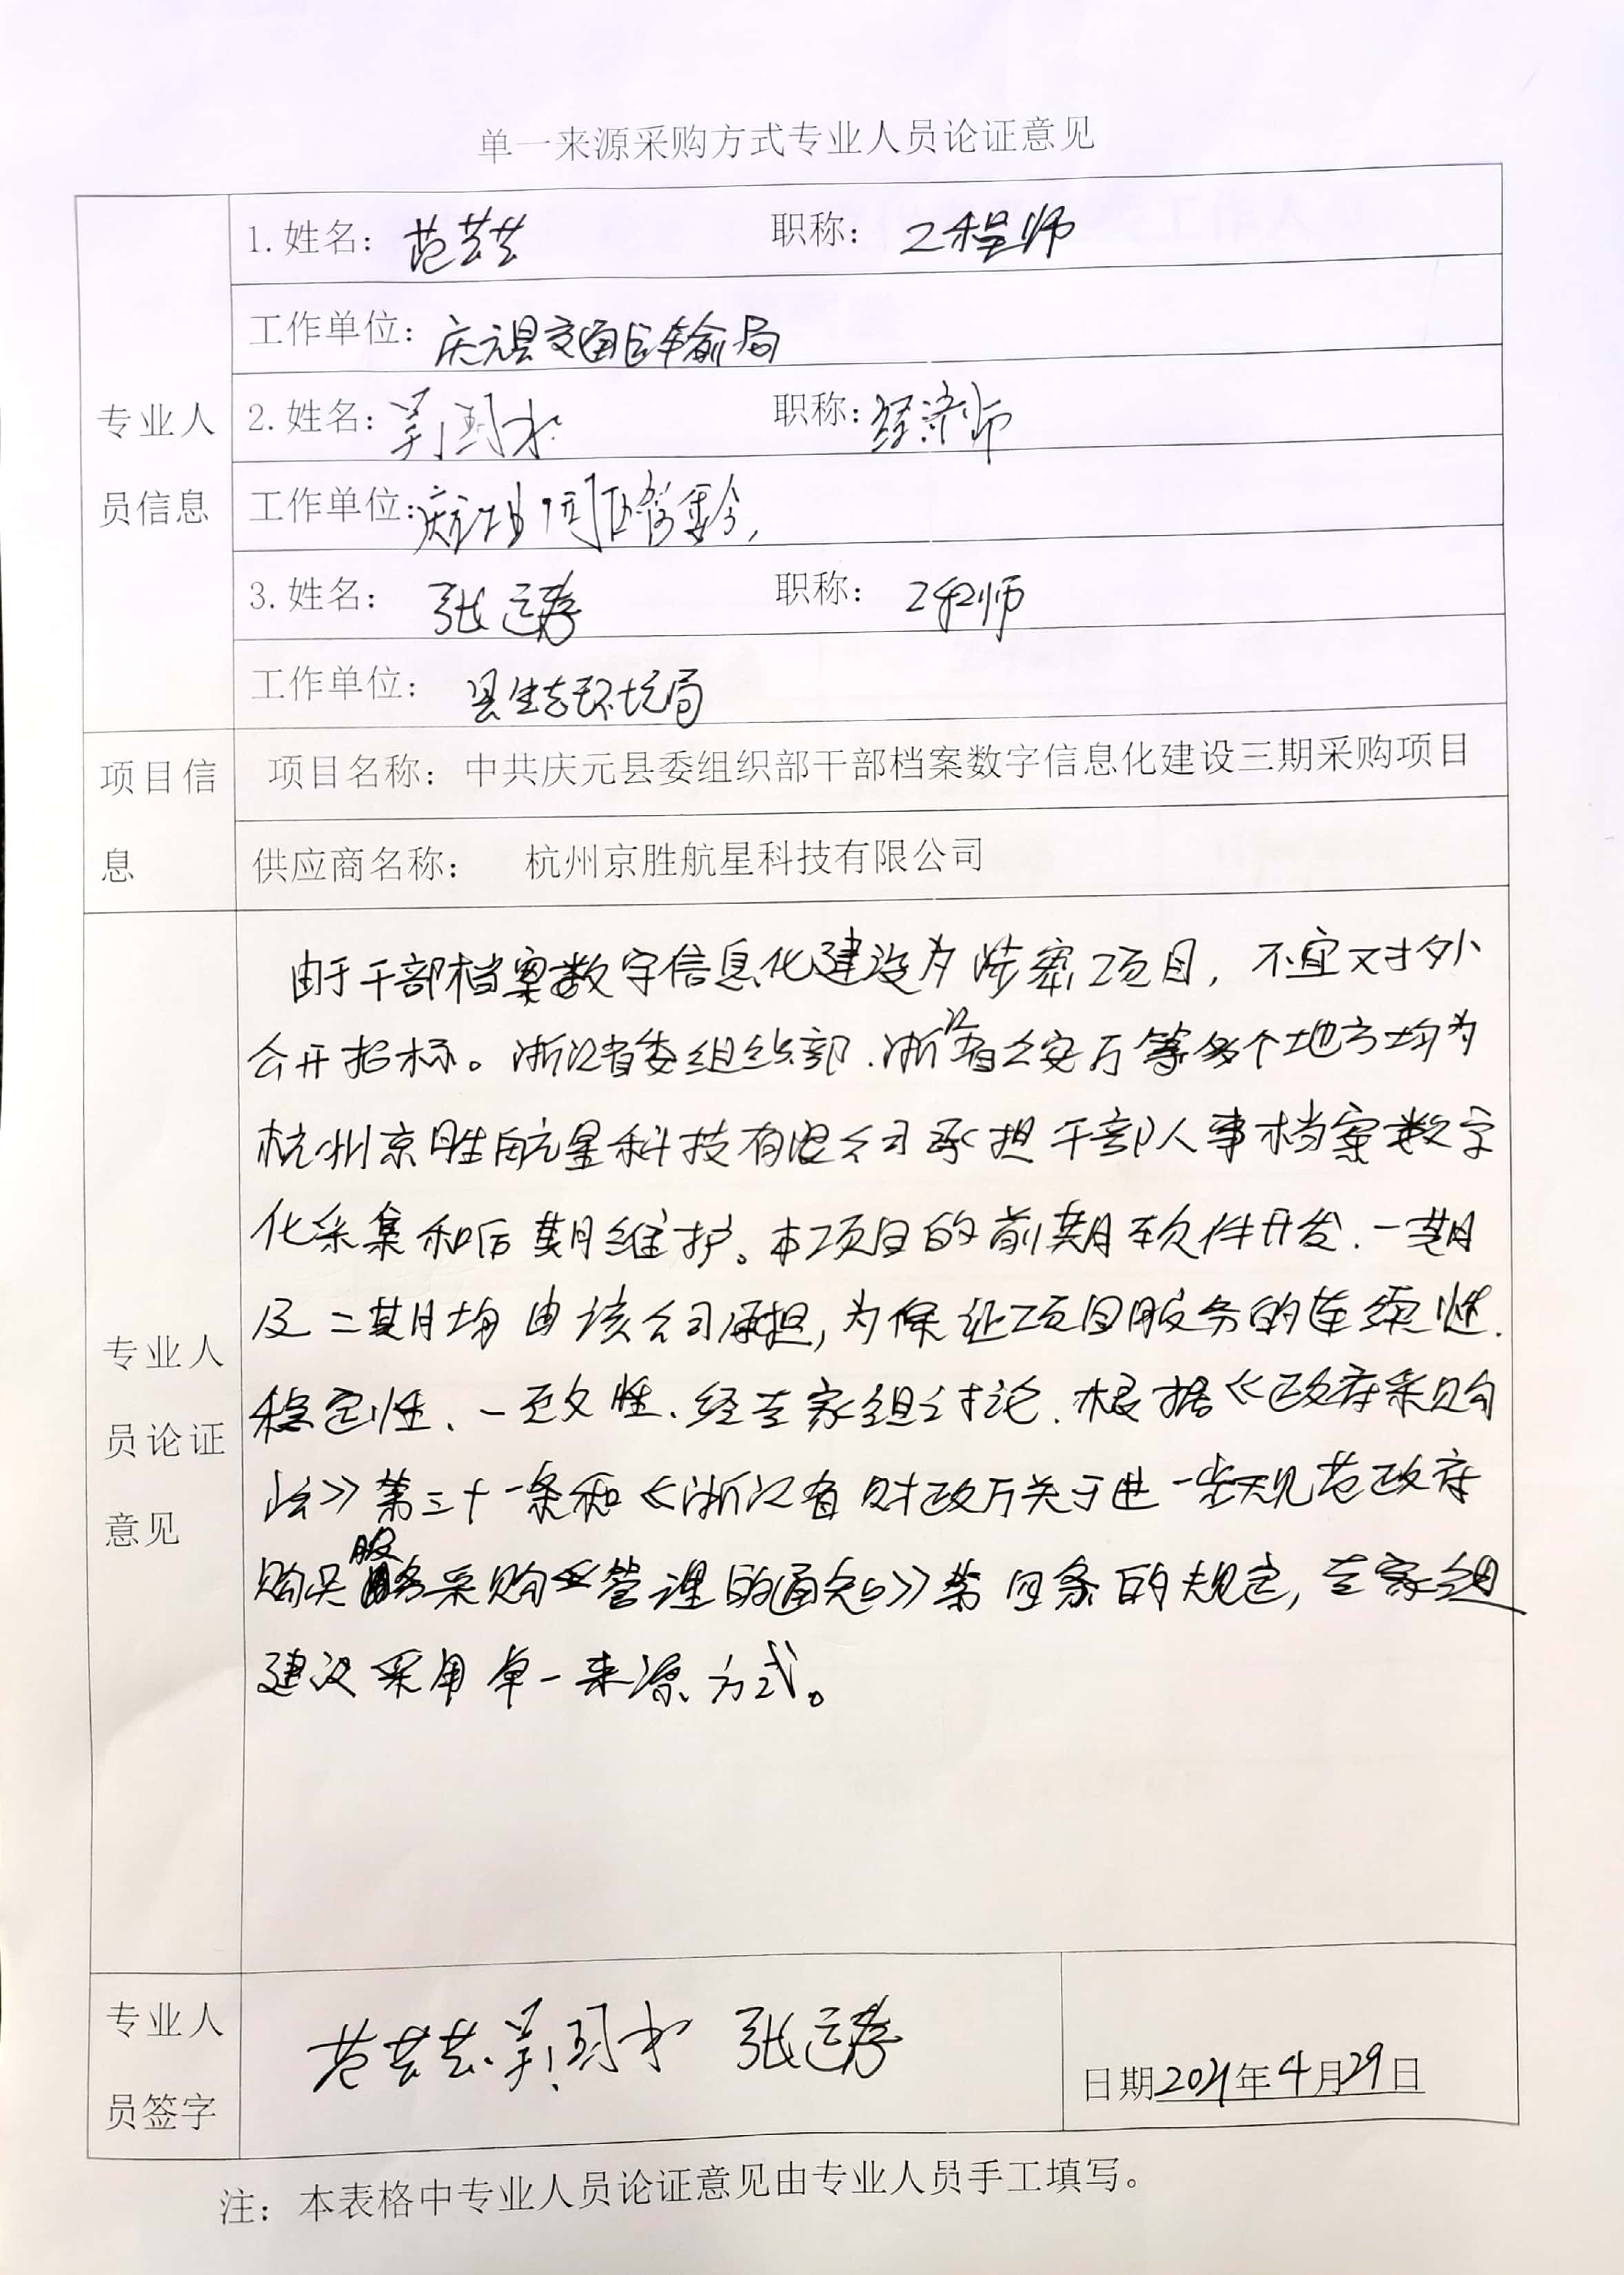 单一来源采购方式专业人员论证意见
专业人员信息
1.姓名：范芸芸 职称：工程师
工作单位：庆元县交通运输局
2.姓名： 职称：经济师
工作单位：
3.姓名：张 职称：工程师
工作单位：县生态环境局
项目信息
项目名称：中共庆元县委组织部干部档案数字信息化建设三期采购项目
供应商名称：杭州京胜航星科技有限公司
专业人员论证意见
由于干部档案数字信息化建设为涉密项目，不宜对外
公开招标。浙江省委组织部、浙江省公安厅等多个地方均为
杭州京胜航星科技有限公司承担干部人事档案数字
化采集和后期维护。本项目的前期软件开发、一期
及二期均由该公司承担，为保证项目服务的连续性、
稳定性、一致性、经专家组讨论、根据《政府采购
法》第三十一条和《浙江省财政厅关于进一步规范政府
购买服务采购管理的通知》第四条的规定，专家组
建议采用单一来源方式。
专业人员签字
范芸芸 张
日期2021年4月29日
注：本表格中专业人员论证意见由专业人员手工填写。